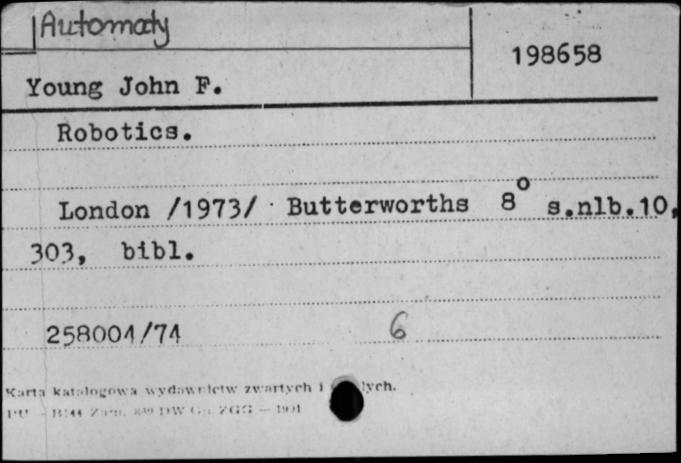 Automaty
198658
Young John F.
Robotics.
London /1973/ Butterworths 8° s.nlb.10,
303, bibl.
258004/74 6
Karta katalogowa wydawnictw zwartych i
PU DW ZGG